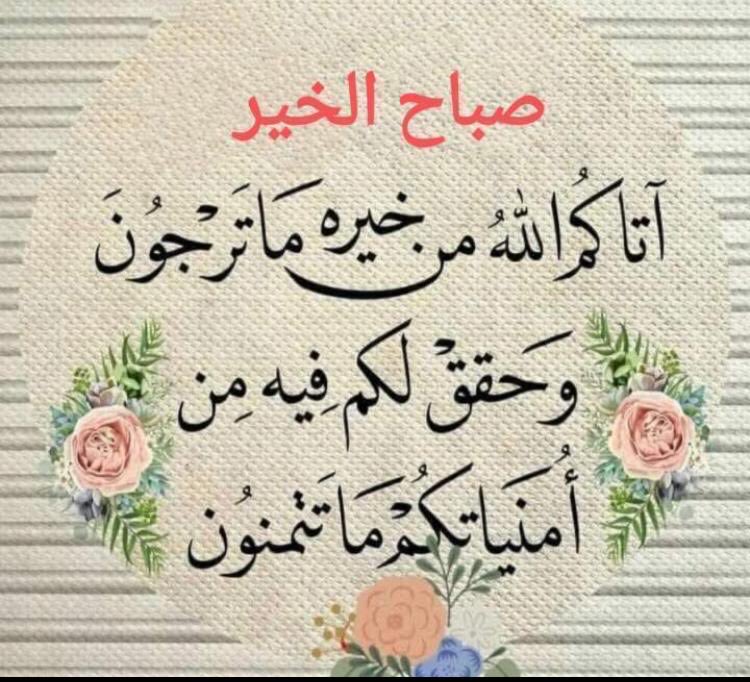 صباح الخير
آتاكُم اللهُ من خيره مَاتَرْجُونَ
وَحَققْ لكم فِيه مِن
أُمنَياتكُمْ مَا تَتمنوُن